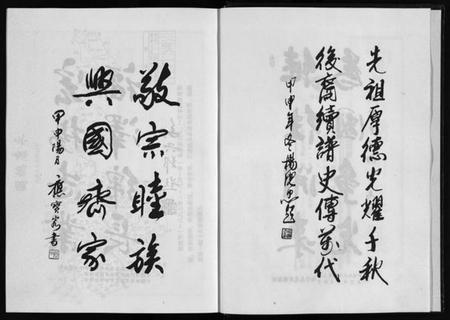 先祖厚德光耀千秋
後裔續譜史傳萬代
甲申年
敬宗睦族
興國齊家
甲申陽月